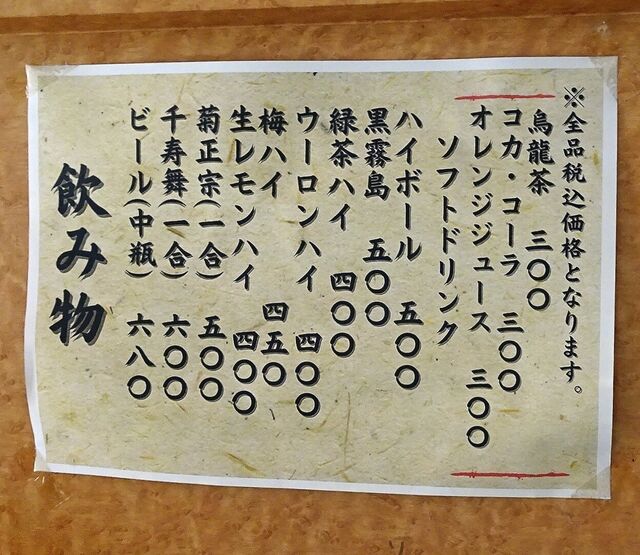 飲み物
ビール(中瓶) 六八〇
千寿舞(一合) 六〇〇
菊正宗(一合) 五〇〇
生レモンハイ 四〇〇
梅ハイ 四五〇
ウーロンハイ 四〇〇
緑茶ハイ 四〇〇
黒霧島 五〇〇
ハイボール 五〇〇
ソフトドリンク
オレンジジュース 三〇〇
コカ・コーラ 三〇〇
烏龍茶 三〇〇
※全品税込価格となります。